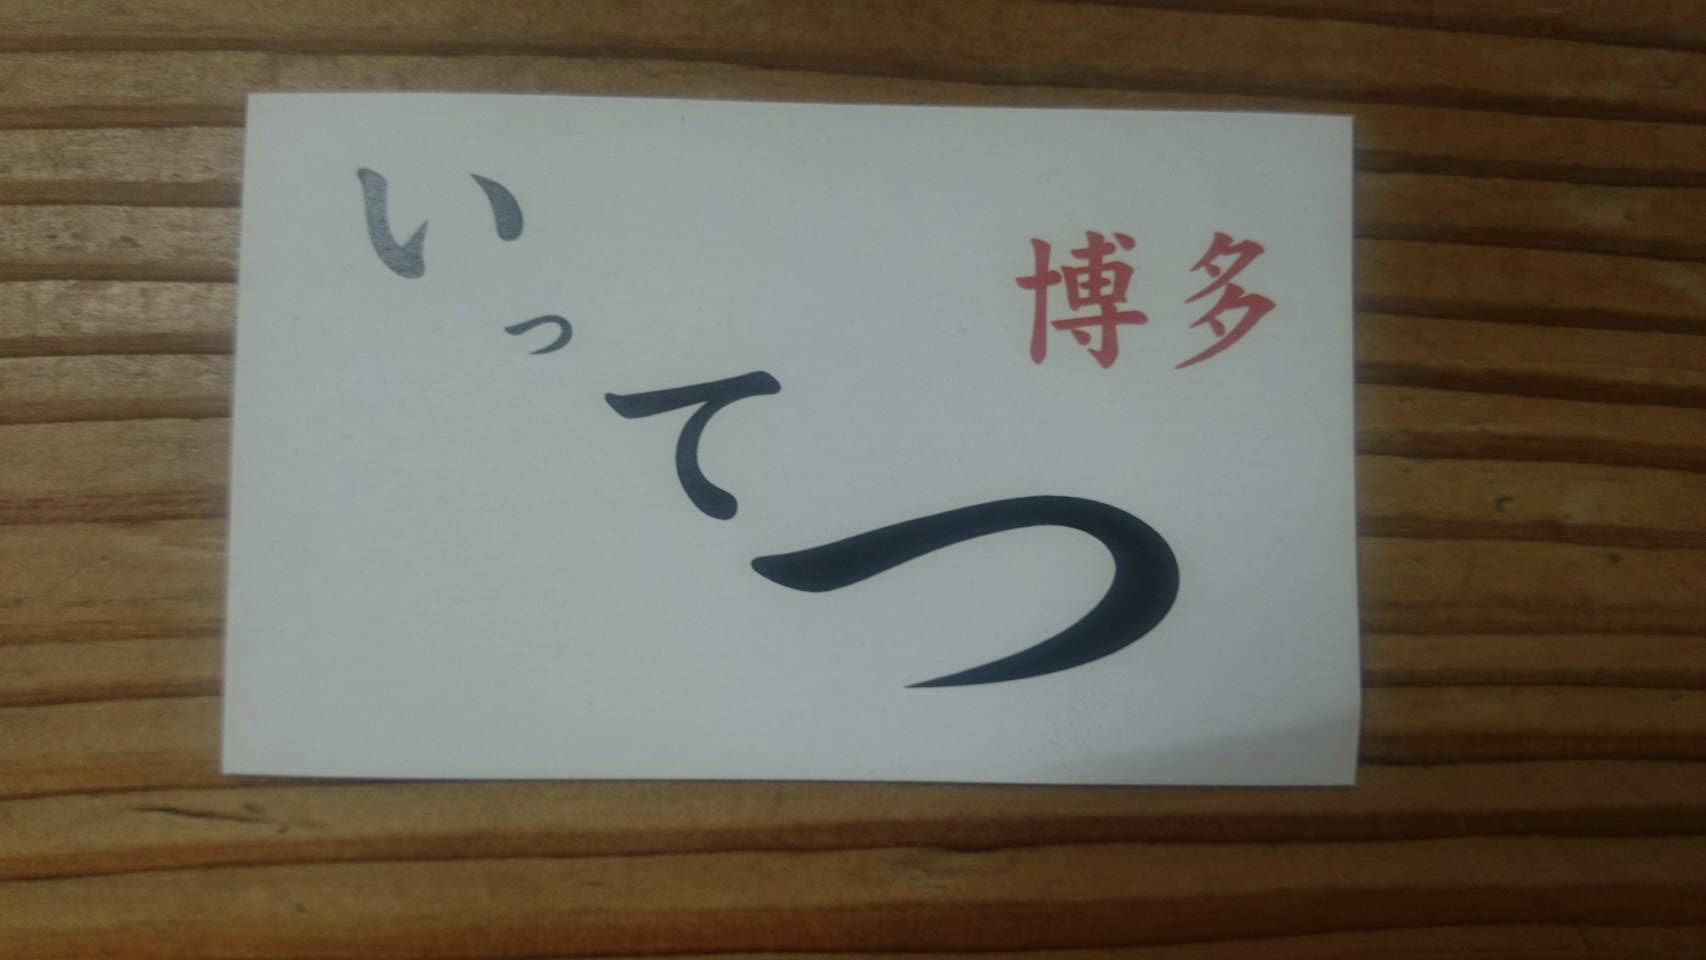 博多
いってつ